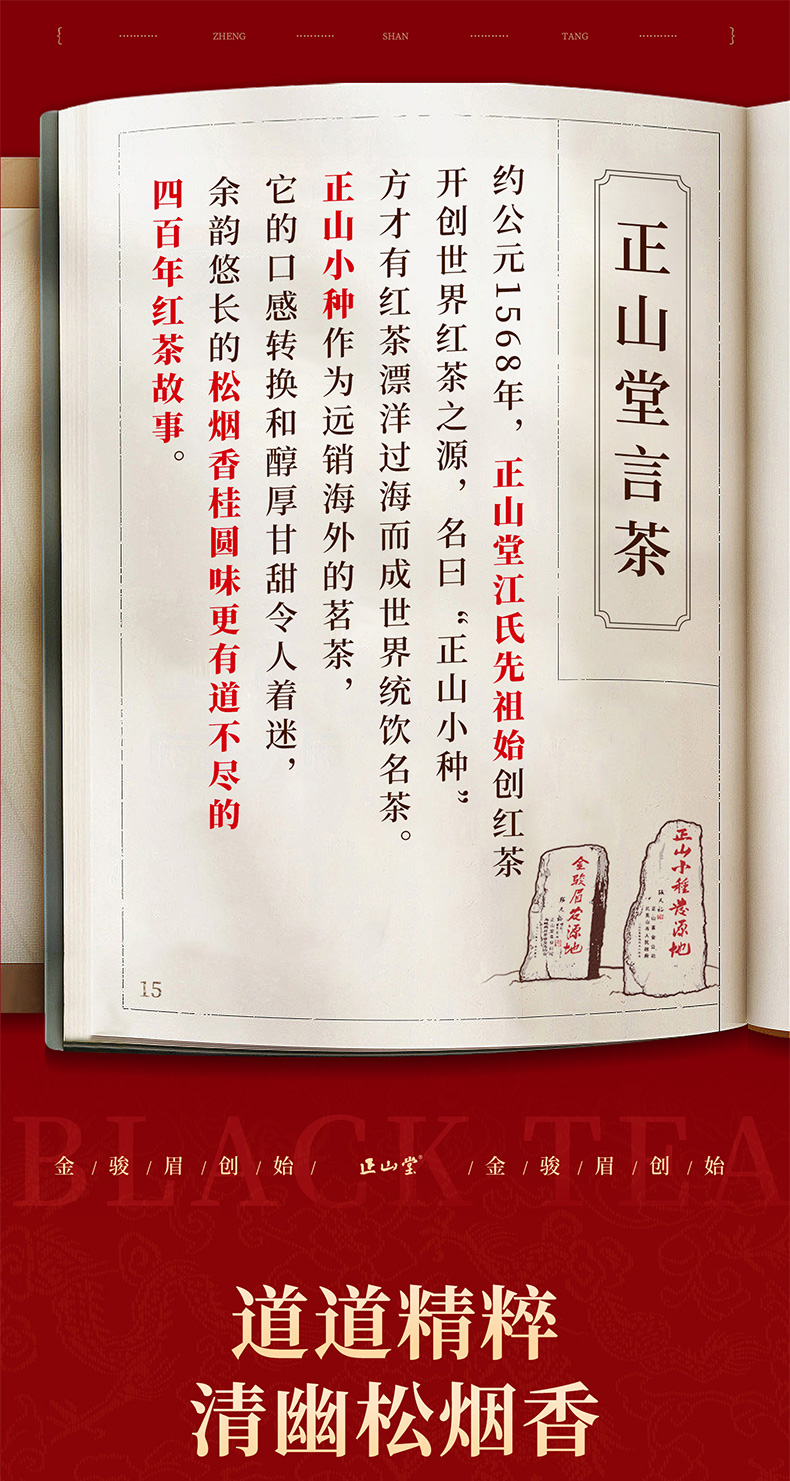 ZHENG SHAN TANG
正山堂言茶
约公元1568年，正山堂江氏先祖始创红茶
开创世界红茶之源，名曰“正山小种”
方才有红茶漂洋过海而成世界统饮名茶。
正山小种作为远销海外的茗茶，
它的口感转换和醇厚甘甜令人着迷，
余韵悠长的松烟香桂圆味更有道不尽的
四百年红茶故事。
正山小种发源地
金骏眉发源地
15
BLACK TEA
金/骏/眉/创/始/ 正山堂® /金/骏/眉/创/始
道道精粹
清幽松烟香